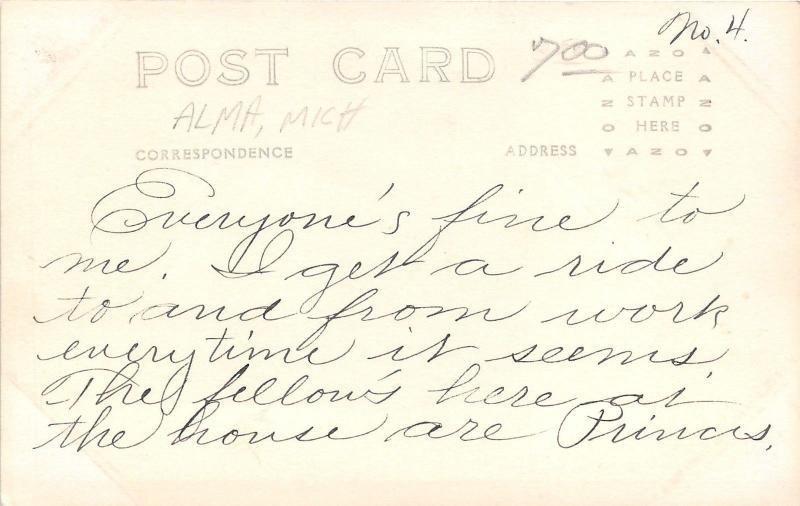 No. 4.
POST CARD
7.00
AZO
PLACE
STAMP
HERE
AZO
ALMA, MICH
CORRESPONDENCE
ADDRESS
Everyone's fine to
me. I get a ride
to and from work
everytime it seems.
The fellow's here at
the house are Princes,